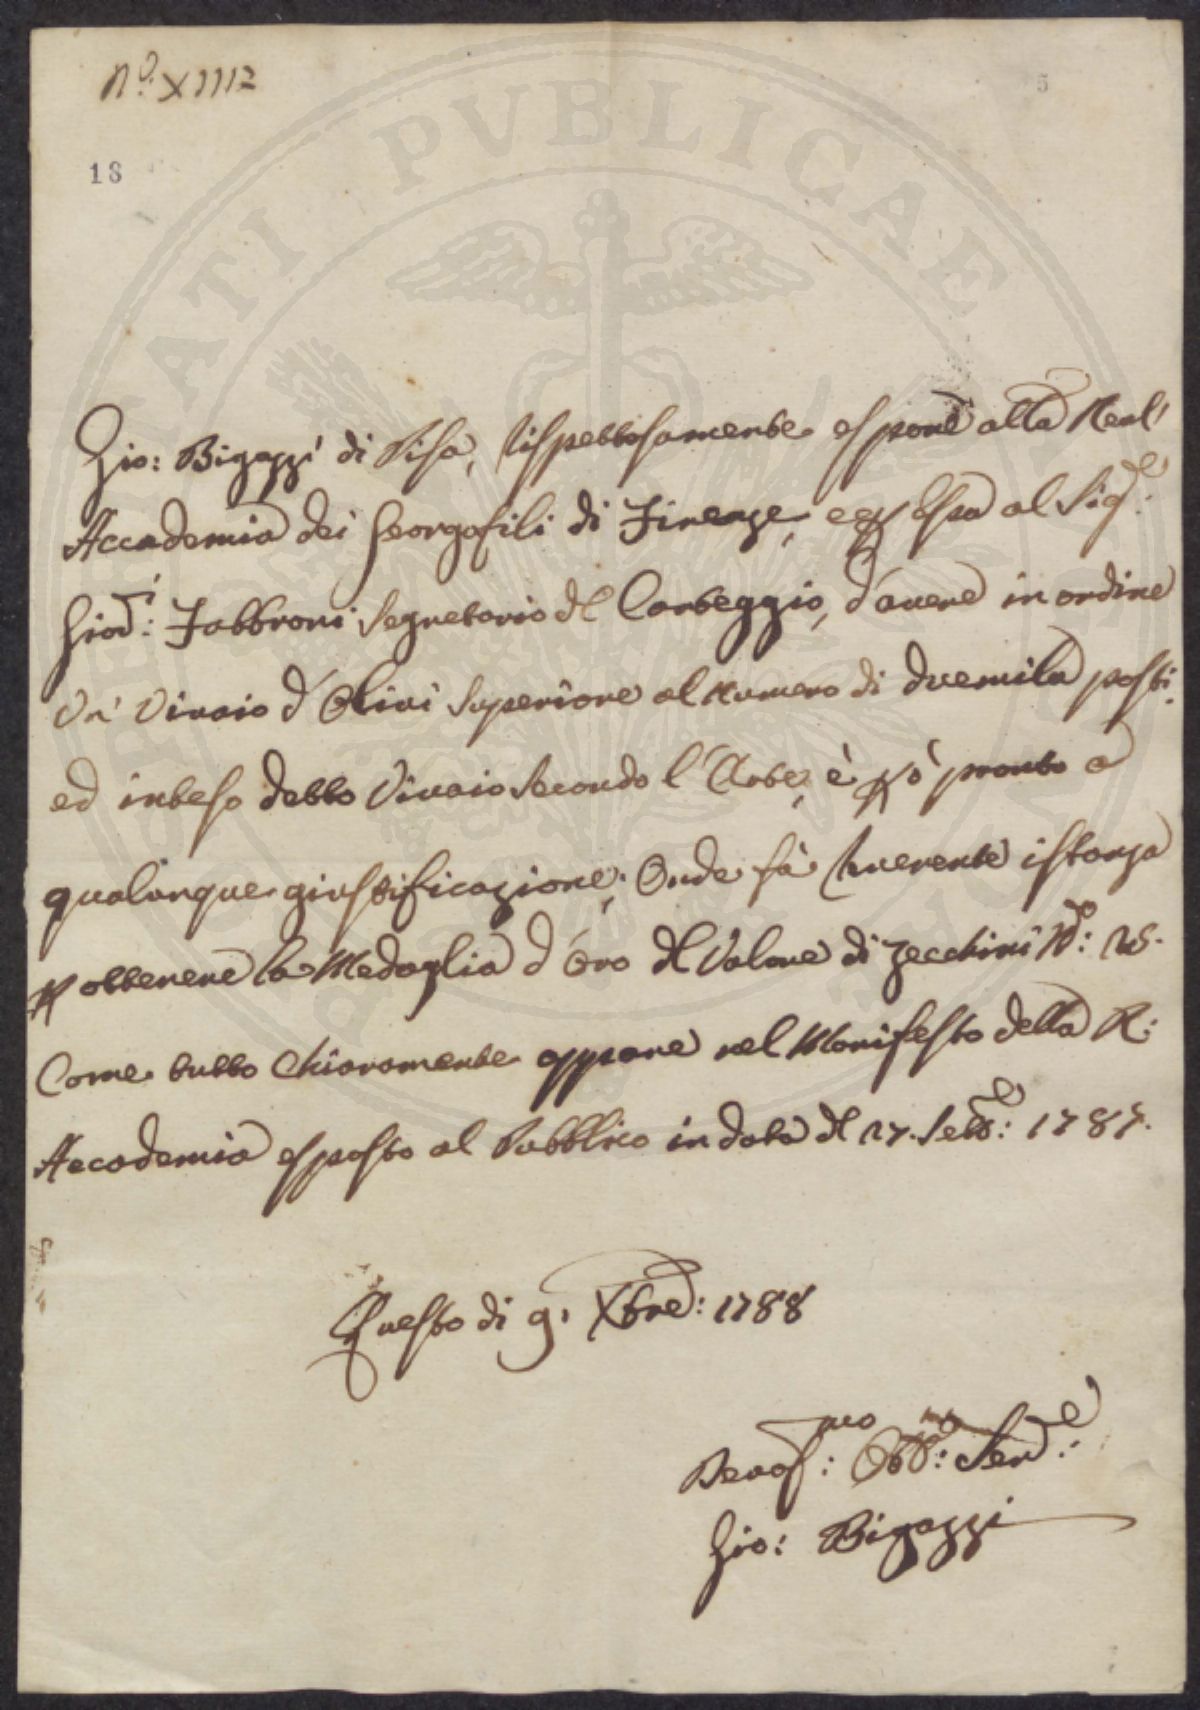 N.º XIIII
5
18
Gio: Bigazzi di Pisa, rispettosamente espone alla Real'
Accademia dei Georgofili di Firenze, e per Essa al Sig.re:
Giov:i Fabbroni Segretario del Carteggio, d'avere in ordine
Un' Vivaio d'Olivi superiore al Numero di duemila posti:
ed inteso detto Vivaio secondo l'Arte, è però pronto a
qualunque giustificazione; Onde fà riverente istanza
per ottenere la Medaglia d'Oro del Valore di Zecchini N.º: 25.
Come tutto chiaramente appare nel Manifesto della R:
Accademia esposto al Pubblico in data del 27. Sett.e: 1787.
Questo dì 9. Xbre: 1788
Devos:mo Obb:mo Serv.e:
Gio: Bigazzi
PVBLICAE